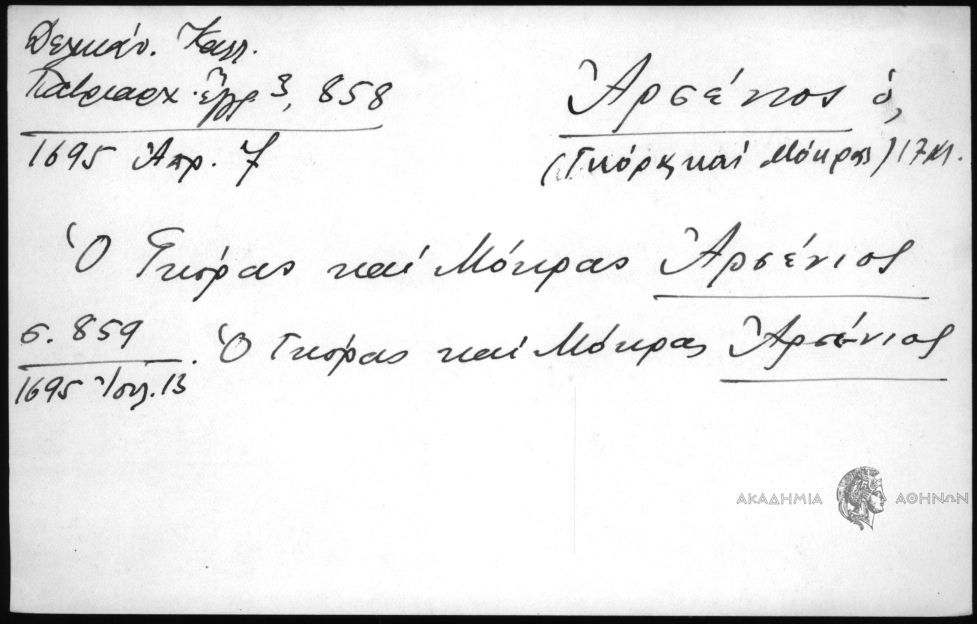 Δελικάν. Καλλ.
Πατριαρχ. Ἔγγρ 3, 858
1695 Ἀπρ. 7
Ἀρσένιος ὁ,
(Γκόρας καὶ Μόκρας) 17 αἰ.
Ὁ Γκόρας καὶ Μόκρας Ἀρσένιος
σ. 859
1695 Ἰουλ. 13
Ὁ Γκόρας καὶ Μόκρας Ἀρσένιος
ΑΚΑΔΗΜΙΑ ΑΘΗΝΩΝ